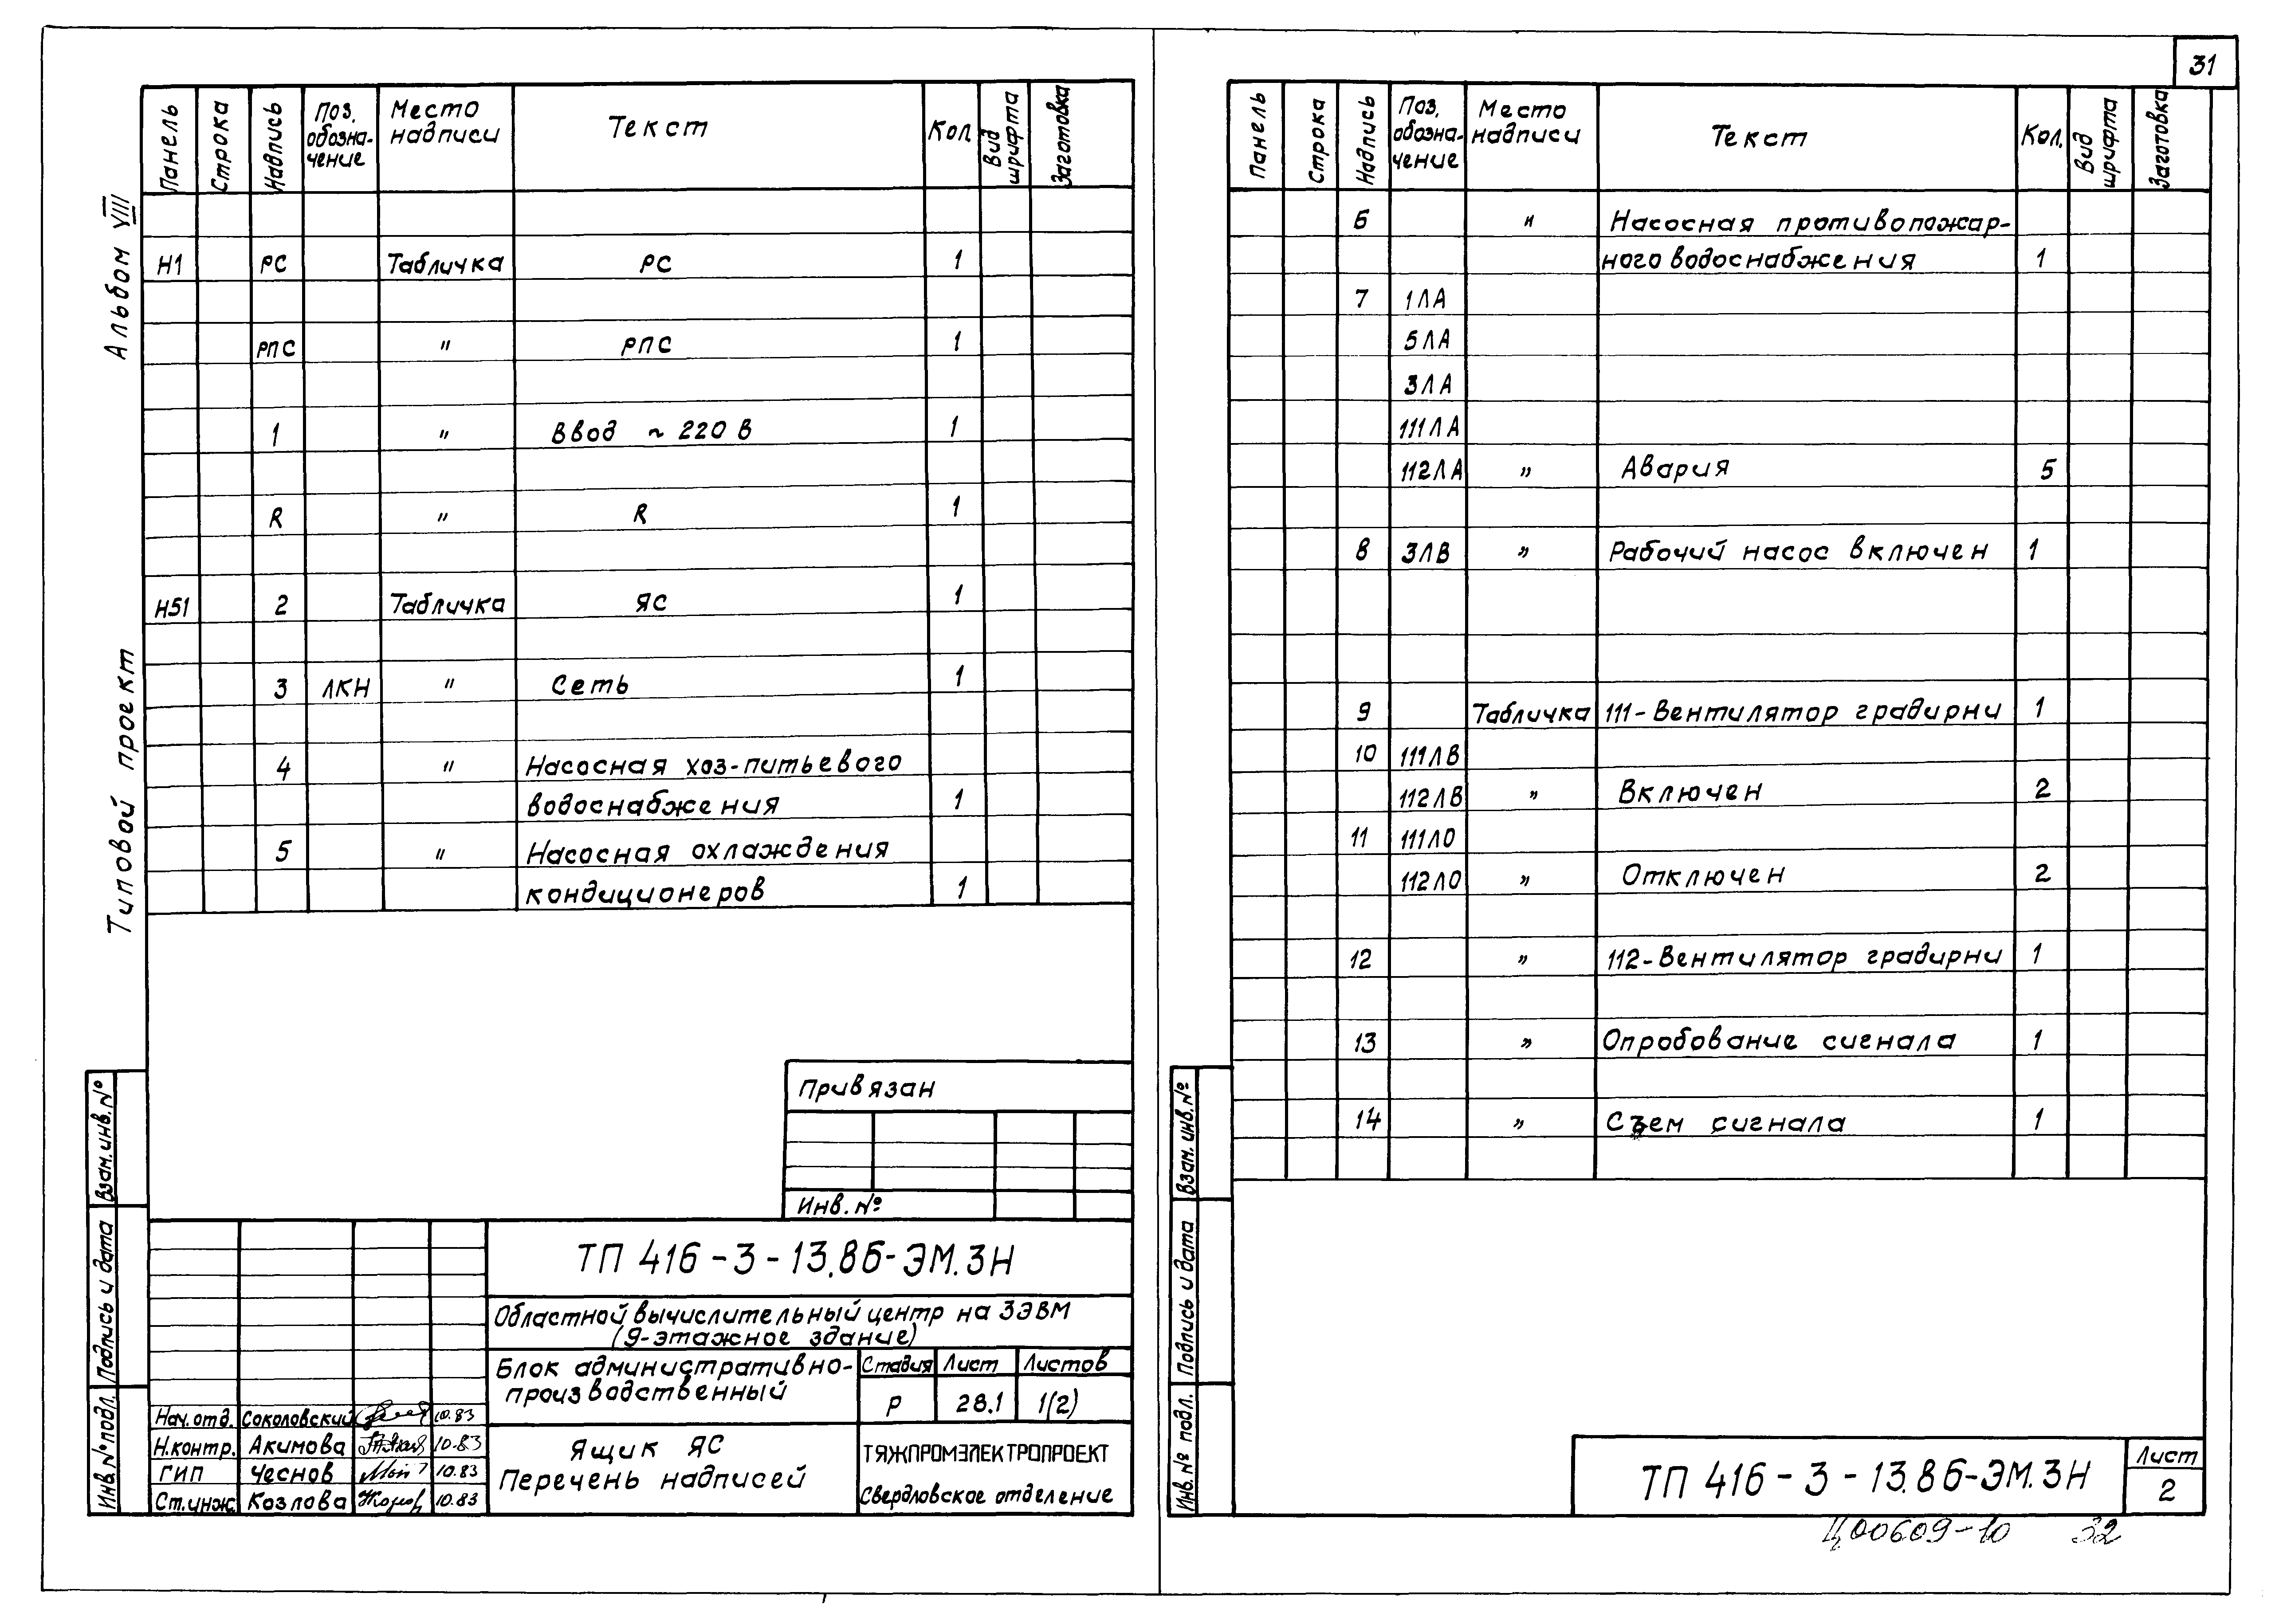 31
Альбом VIII
Типовой проект
Панель Строка Надпись Поз. обозна-чение Место надписи Текст Кол. Вид шрифта Заготовка
Н1 РС Табличка РС 1
РПС " РПС 1
1 " Ввод ~ 220 В 1
R " R 1
Н51 2 Табличка ЯС 1
3 ЛКН " Сеть 1
4 " Насосная хоз-питьевого
водоснабжения 1
5 " Насосная охлаждения
кондиционеров 1
Привязан
Инв. №
ТП 416-3-13.86-ЭМ.ЗН
Областной вычислительный центр на 3ЭВМ
(9-этажное здание)
Блок административно-
производственный
Стадия Лист Листов
Р 28.1 1(2)
Нач. отд. Соколовский 10.83
Н.контр. Акимова 10-83
ГИП Чеснов 10.83
Ст.инж. Козлова 10.83
Ящик ЯС
Перечень надписей
ТЯЖПРОМЭЛЕКТРОПРОЕКТ
Свердловское отделение
Взам. инв. №
Подпись и дата
Инв. № подл.
Панель Строка Надпись Поз. обозна-чение Место надписи Текст Кол. Вид шрифта Заготовка
6 " Насосная противопожар-
ного водоснабжения 1
7 1ЛА
5ЛА
3ЛА
111ЛА
112ЛА " Авария 5
8 3ЛВ " Рабочий насос включен 1
9 Табличка 111-Вентилятор градирни 1
10 111ЛВ
112ЛВ " Включен 2
11 111ЛО
112ЛО " Отключен 2
12 " 112-Вентилятор градирни 1
13 " Опробование сигнала 1
14 " Съем сигнала 1
Взам. инв. №
Подпись и дата
Инв. № подл.
ТП 416-3-13.86-ЭМ.ЗН
Лист
2
Ц00609-10 32